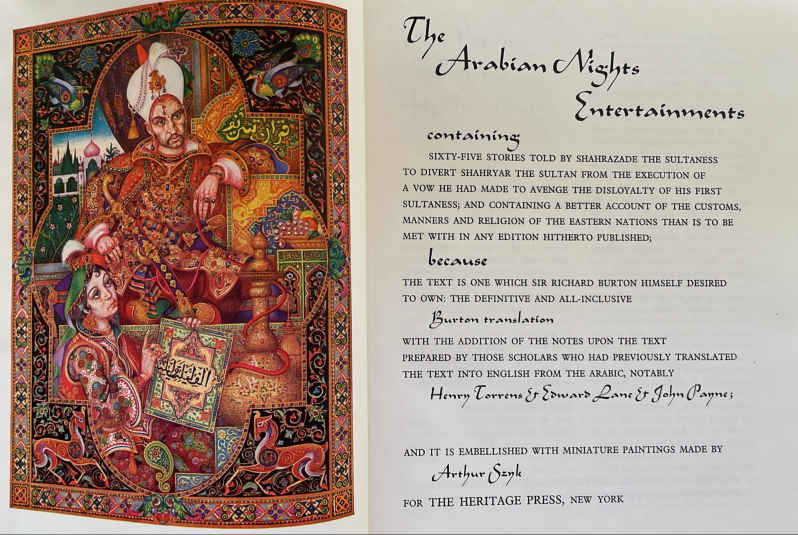 الف ليلة وليلة
The
Arabian Nights
Entertainments
containing
SIXTY-FIVE STORIES TOLD BY SHAHRAZADE THE SULTANESS
TO DIVERT SHAHRYAR THE SULTAN FROM THE EXECUTION OF
A VOW HE HAD MADE TO AVENGE THE DISLOYALTY OF HIS FIRST
SULTANESS; AND CONTAINING A BETTER ACCOUNT OF THE CUSTOMS,
MANNERS AND RELIGION OF THE EASTERN NATIONS THAN IS TO BE
MET WITH IN ANY EDITION HITHERTO PUBLISHED;
because
THE TEXT IS ONE WHICH SIR RICHARD BURTON HIMSELF DESIRED
TO OWN: THE DEFINITIVE AND ALL-INCLUSIVE
Burton translation
WITH THE ADDITION OF THE NOTES UPON THE TEXT
PREPARED BY THOSE SCHOLARS WHO HAD PREVIOUSLY TRANSLATED
THE TEXT INTO ENGLISH FROM THE ARABIC, NOTABLY
Henry Torrens & Edward Lane & John Payne;
AND IT IS EMBELLISHED WITH MINIATURE PAINTINGS MADE BY
Arthur Szyk
FOR THE HERITAGE PRESS, NEW YORK